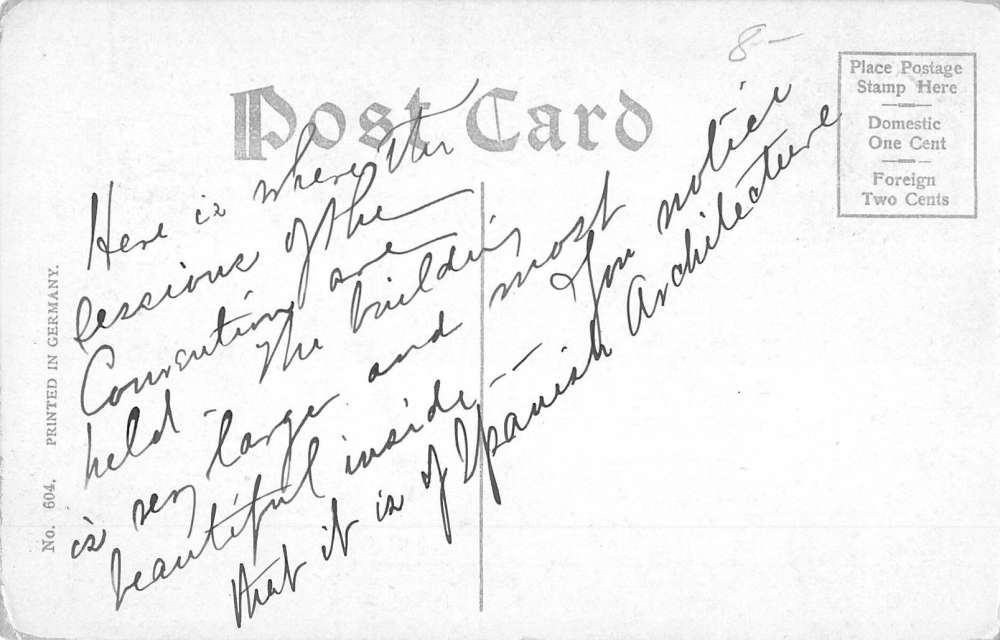 8-
Post Card
Place Postage
Stamp Here
Domestic
One Cent
Foreign
Two Cents
Here is where the
sessions of the
Convention are
held The building
is very large and most
beautiful inside — You notice
that it is of Spanish Architecture
No. 604. PRINTED IN GERMANY.